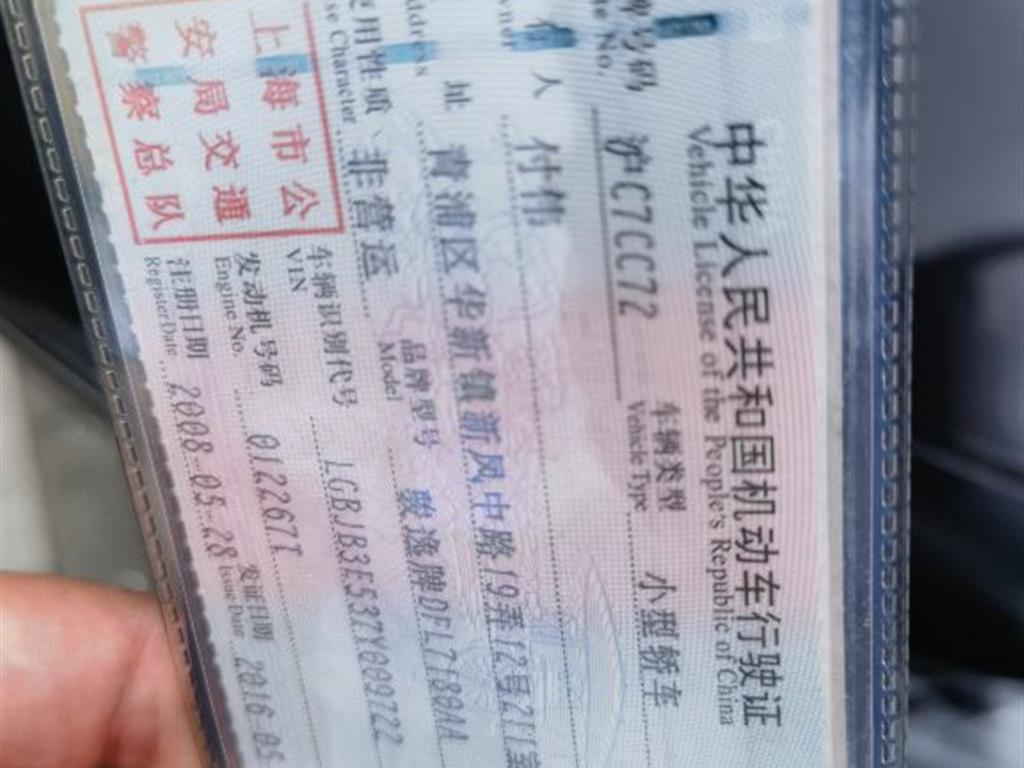 中华人民共和国机动车行驶证
Vehicle License of the People's Republic of China
牌号码 沪C7CC72 车辆类型 小型轿车
te No. Vehicle Type
人 付伟
址 青浦区华新镇新凤中路19弄12号211室
Address
使用性质 非营运 品牌型号 骏逸牌DFL7180AA
se Character Model
车辆识别代号 LGBJB3E537Y009722
VIN
发动机号码 012267T
Engine No.
注册日期 2008-05-28 发证日期 2016-05
Register Date Issue Date
上海市公
安局交通
警察总队